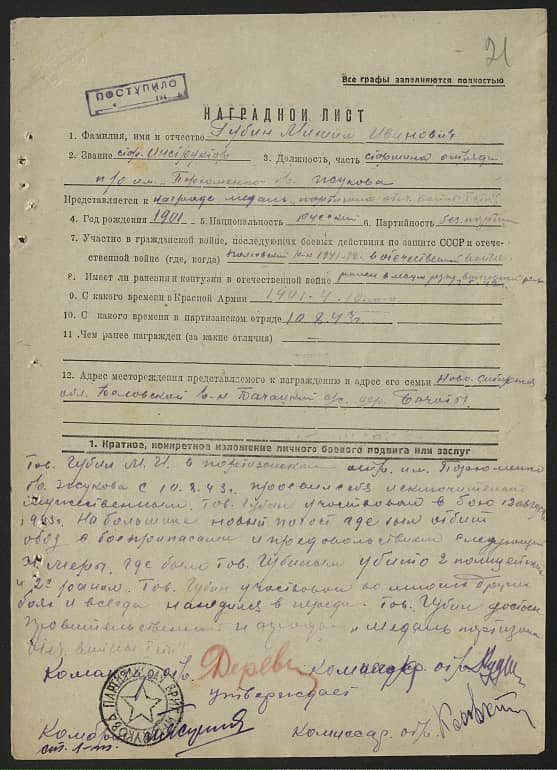 21
Все графы заполняются полностью
ПОСТУПИЛО
194
НАГРАДНОЙ ЛИСТ
1. Фамилия, имя и отчество Губин Михаил Иванович
2. Звание стар. Инструктор 3. Должность, часть старшина отряда
п/о им. Пархоменко бр. Жукова
Представляется к награде медаль партизана
4. Год рождения 1901 5. Национальность русский 6. Партийность без партии
7. Участие в гражданской войне, последующих боевых действиях по защите СССР и отече-
ственной войне (где, когда) 1941-42 в отечественной войне
8. Имеет ли ранения и контузии в отечественной войне ранен в левую руку
9. С какого времени в Красной Армии 1941-4
10. С какого времени в партизанском отряде 10.8.43г
11. Чем ранее награжден (за какие отличия)
12. Адрес месторождения представляемого к награждению и адрес его семьи Ново-Сибирская
обл. Беловской р-н Бачатский с/с. дер. Бачаты
1. Краткое, конкретное изложение личного боевого подвига или заслуг
Тов. Губин М.И. в партизанском отр. им. Пархоменко
бр. Жукова с 10.8.43г. проявил себя исключительно
мужественным. Тов. Губин участвовал в бою 12 августа
1943г. На большаке новый погост где был отбит
обоз с боеприпасами и продовольствием следующий
Где было тов. Губиным убито 2 полицейских
и 2е ранено. Тов. Губин участвовал во многих других
боях и всегда находился впереди. Тов. Губин достоин
правительственной награды "Медаль партизана
Командир отр. Комиссар отр.
Утверждает
ПАРТИЗАНСКАЯ ЖУКОВА
Комбриг
ст. л-т.
Комиссар. бр.